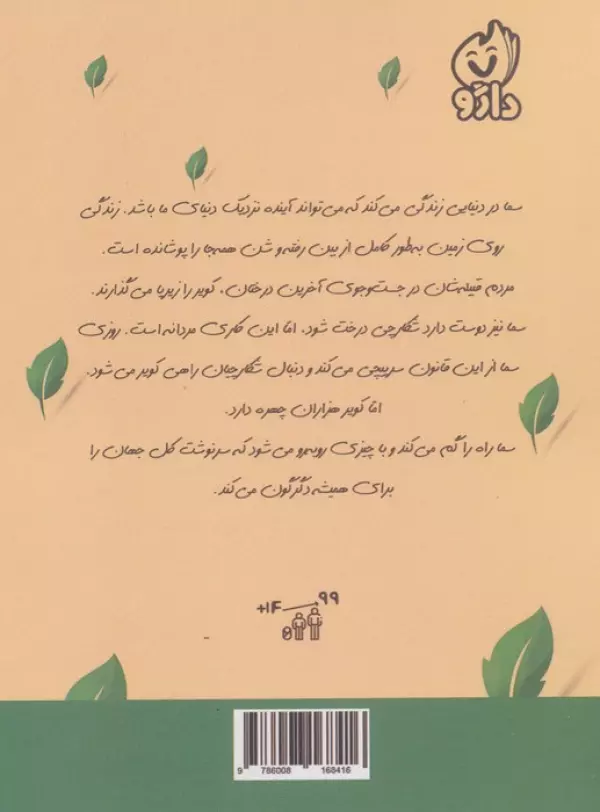 دارو
سما در دنیایی زندگی می کند که می تواند آینده نزدیک دنیای ما باشد. زندگی
روی زمین به‌طور کامل از بین رفته و شن همه‌جا را پوشانده است.
مردم قبیله‌شان در جست‌وجوی آخرین درختان، کویر را زیر پا می گذارند.
سما نیز دوست دارد شکارچی درخت شود، اما این کاری مردانه است. روزی
سما از این قانون سرپیچی می کند و دنبال شکارچیان راهی کویر می شود.
اما کویر هزاران چهره دارد.
سما راه را گم می کند و با چیزی روبه‌رو می شود که سرنوشت کل جهان را
برای همیشه دگرگون می کند.
۹۹
+۱۴
9 786008 168416